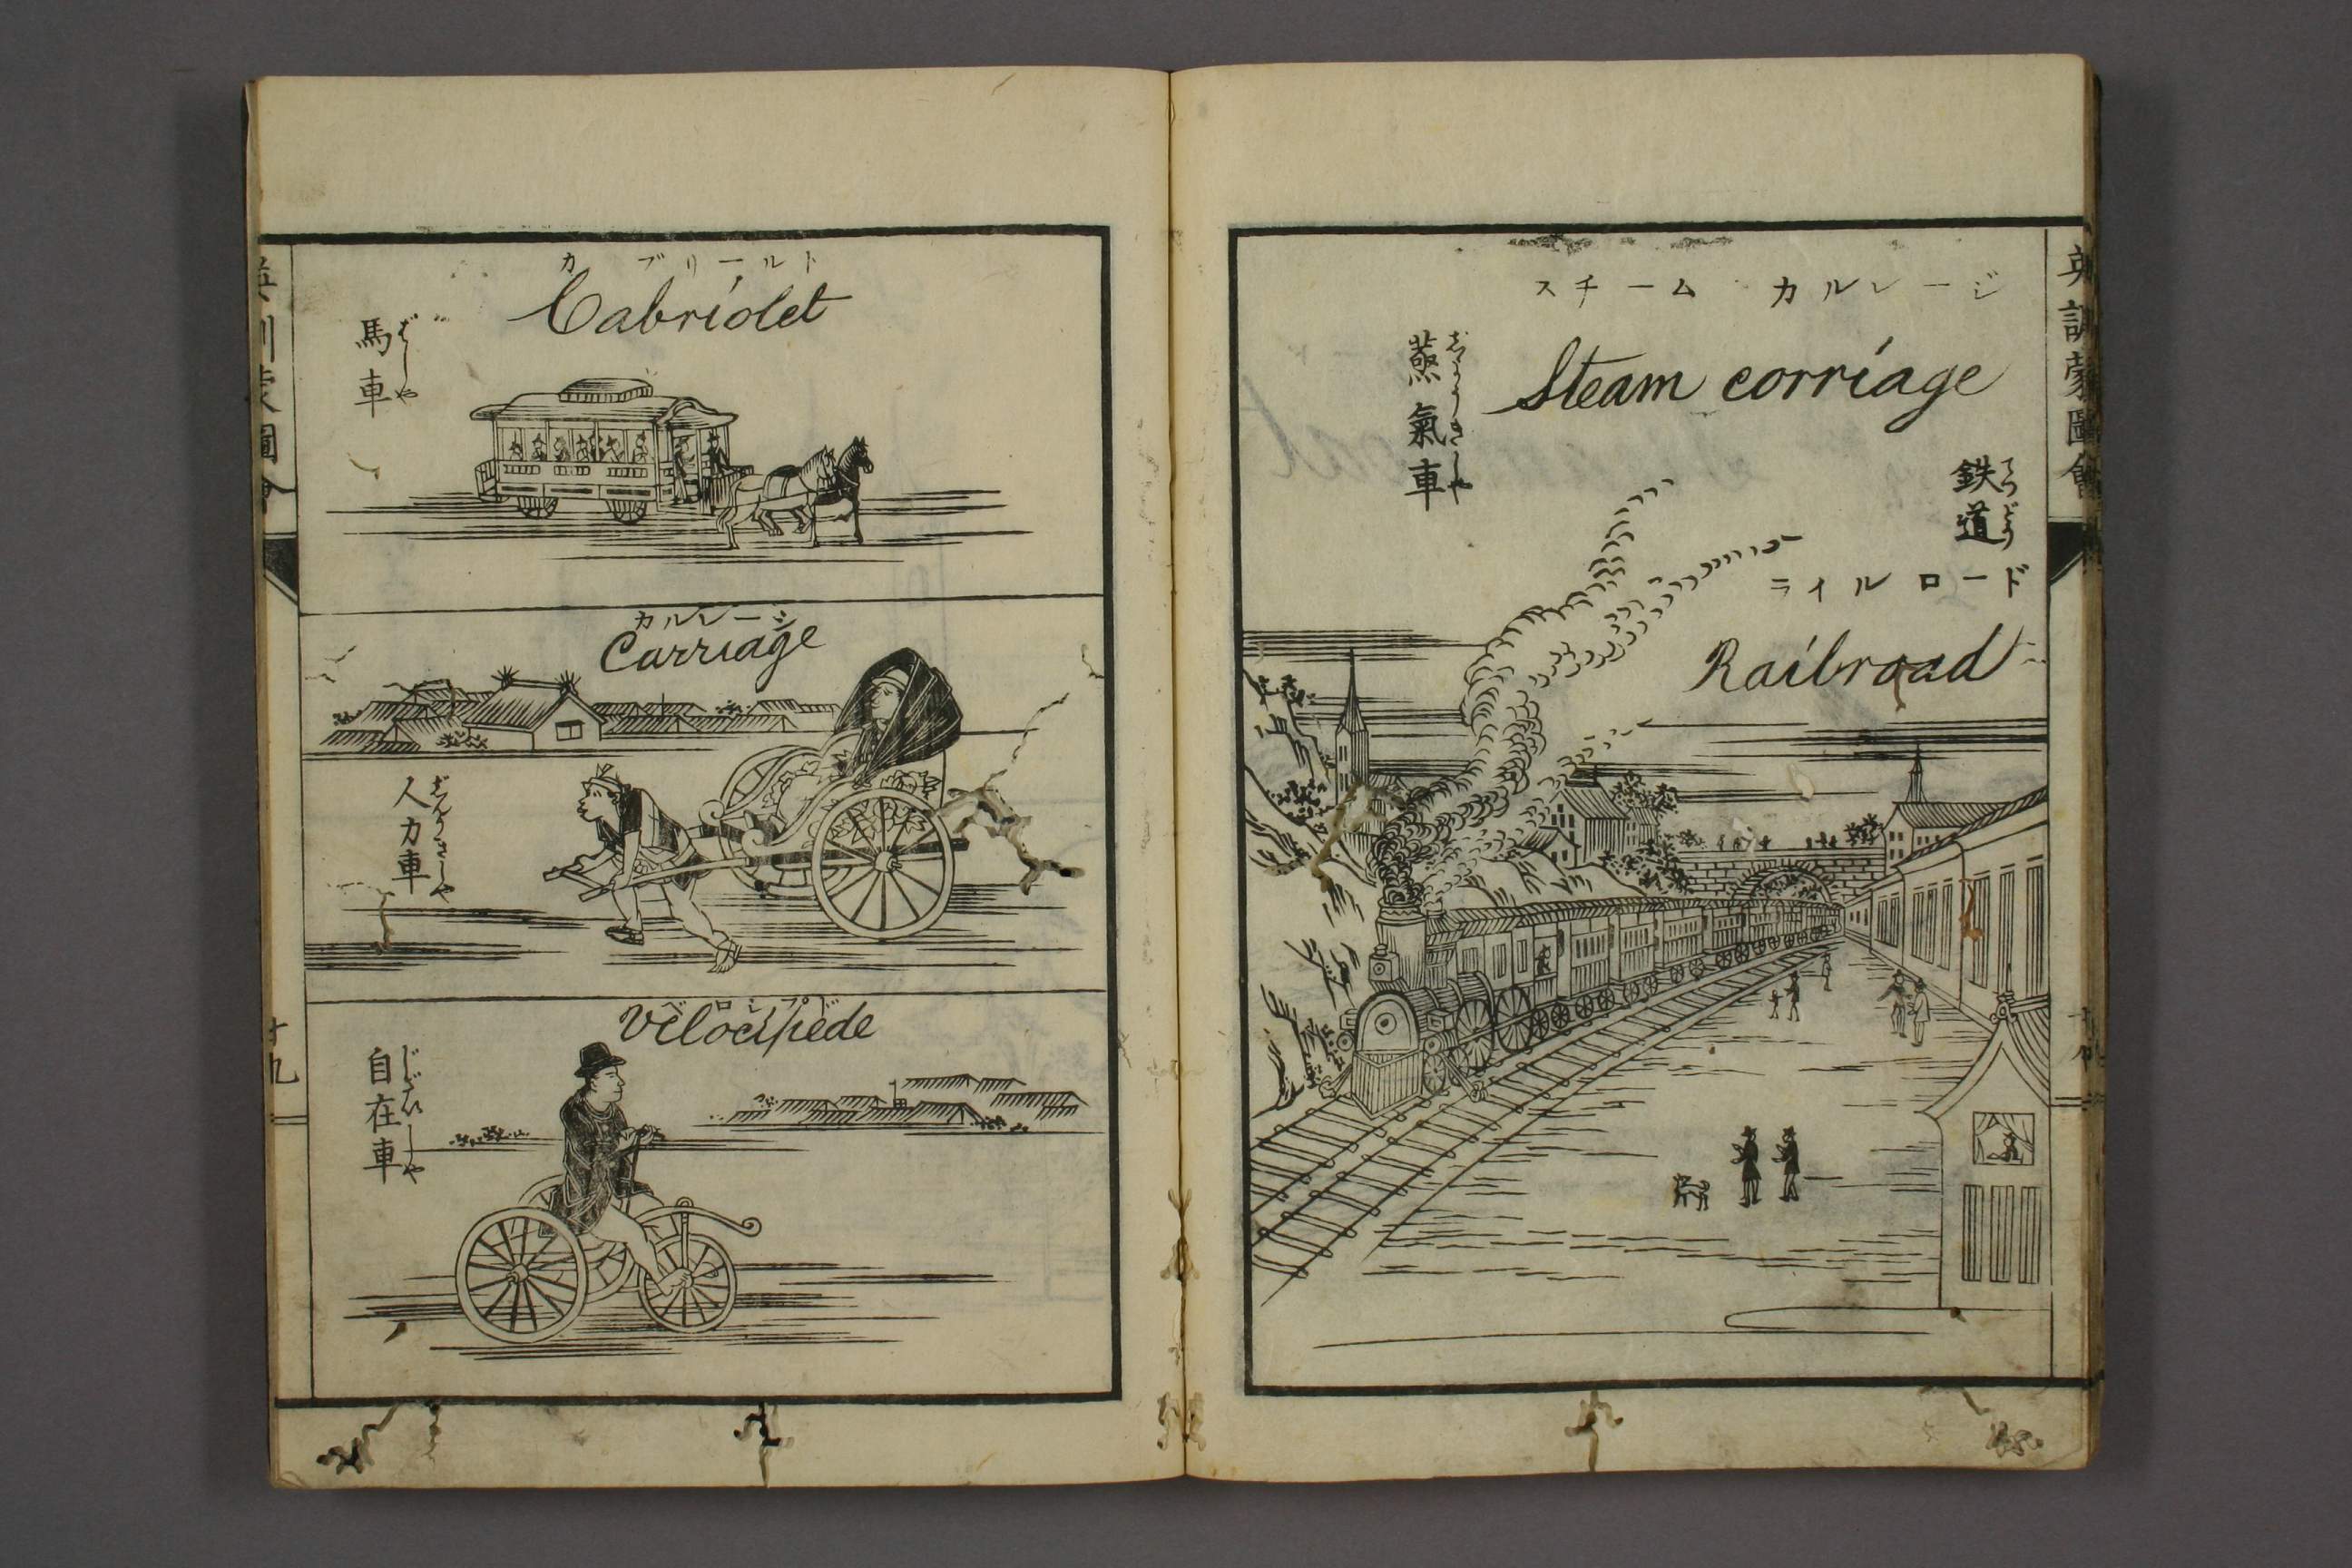 英訓蒙圖會
スチーム カルレージ
Steam corriage
蒸氣車
じようきしや
鉄道
てつどう
ライル ロード
Railroad
カブリールト
Cabriolet
馬車
ばしや
カルレージ
Carriage
人力車
じんりきしや
ベロシプド
Velocipede
自在車
じざいしや
十九